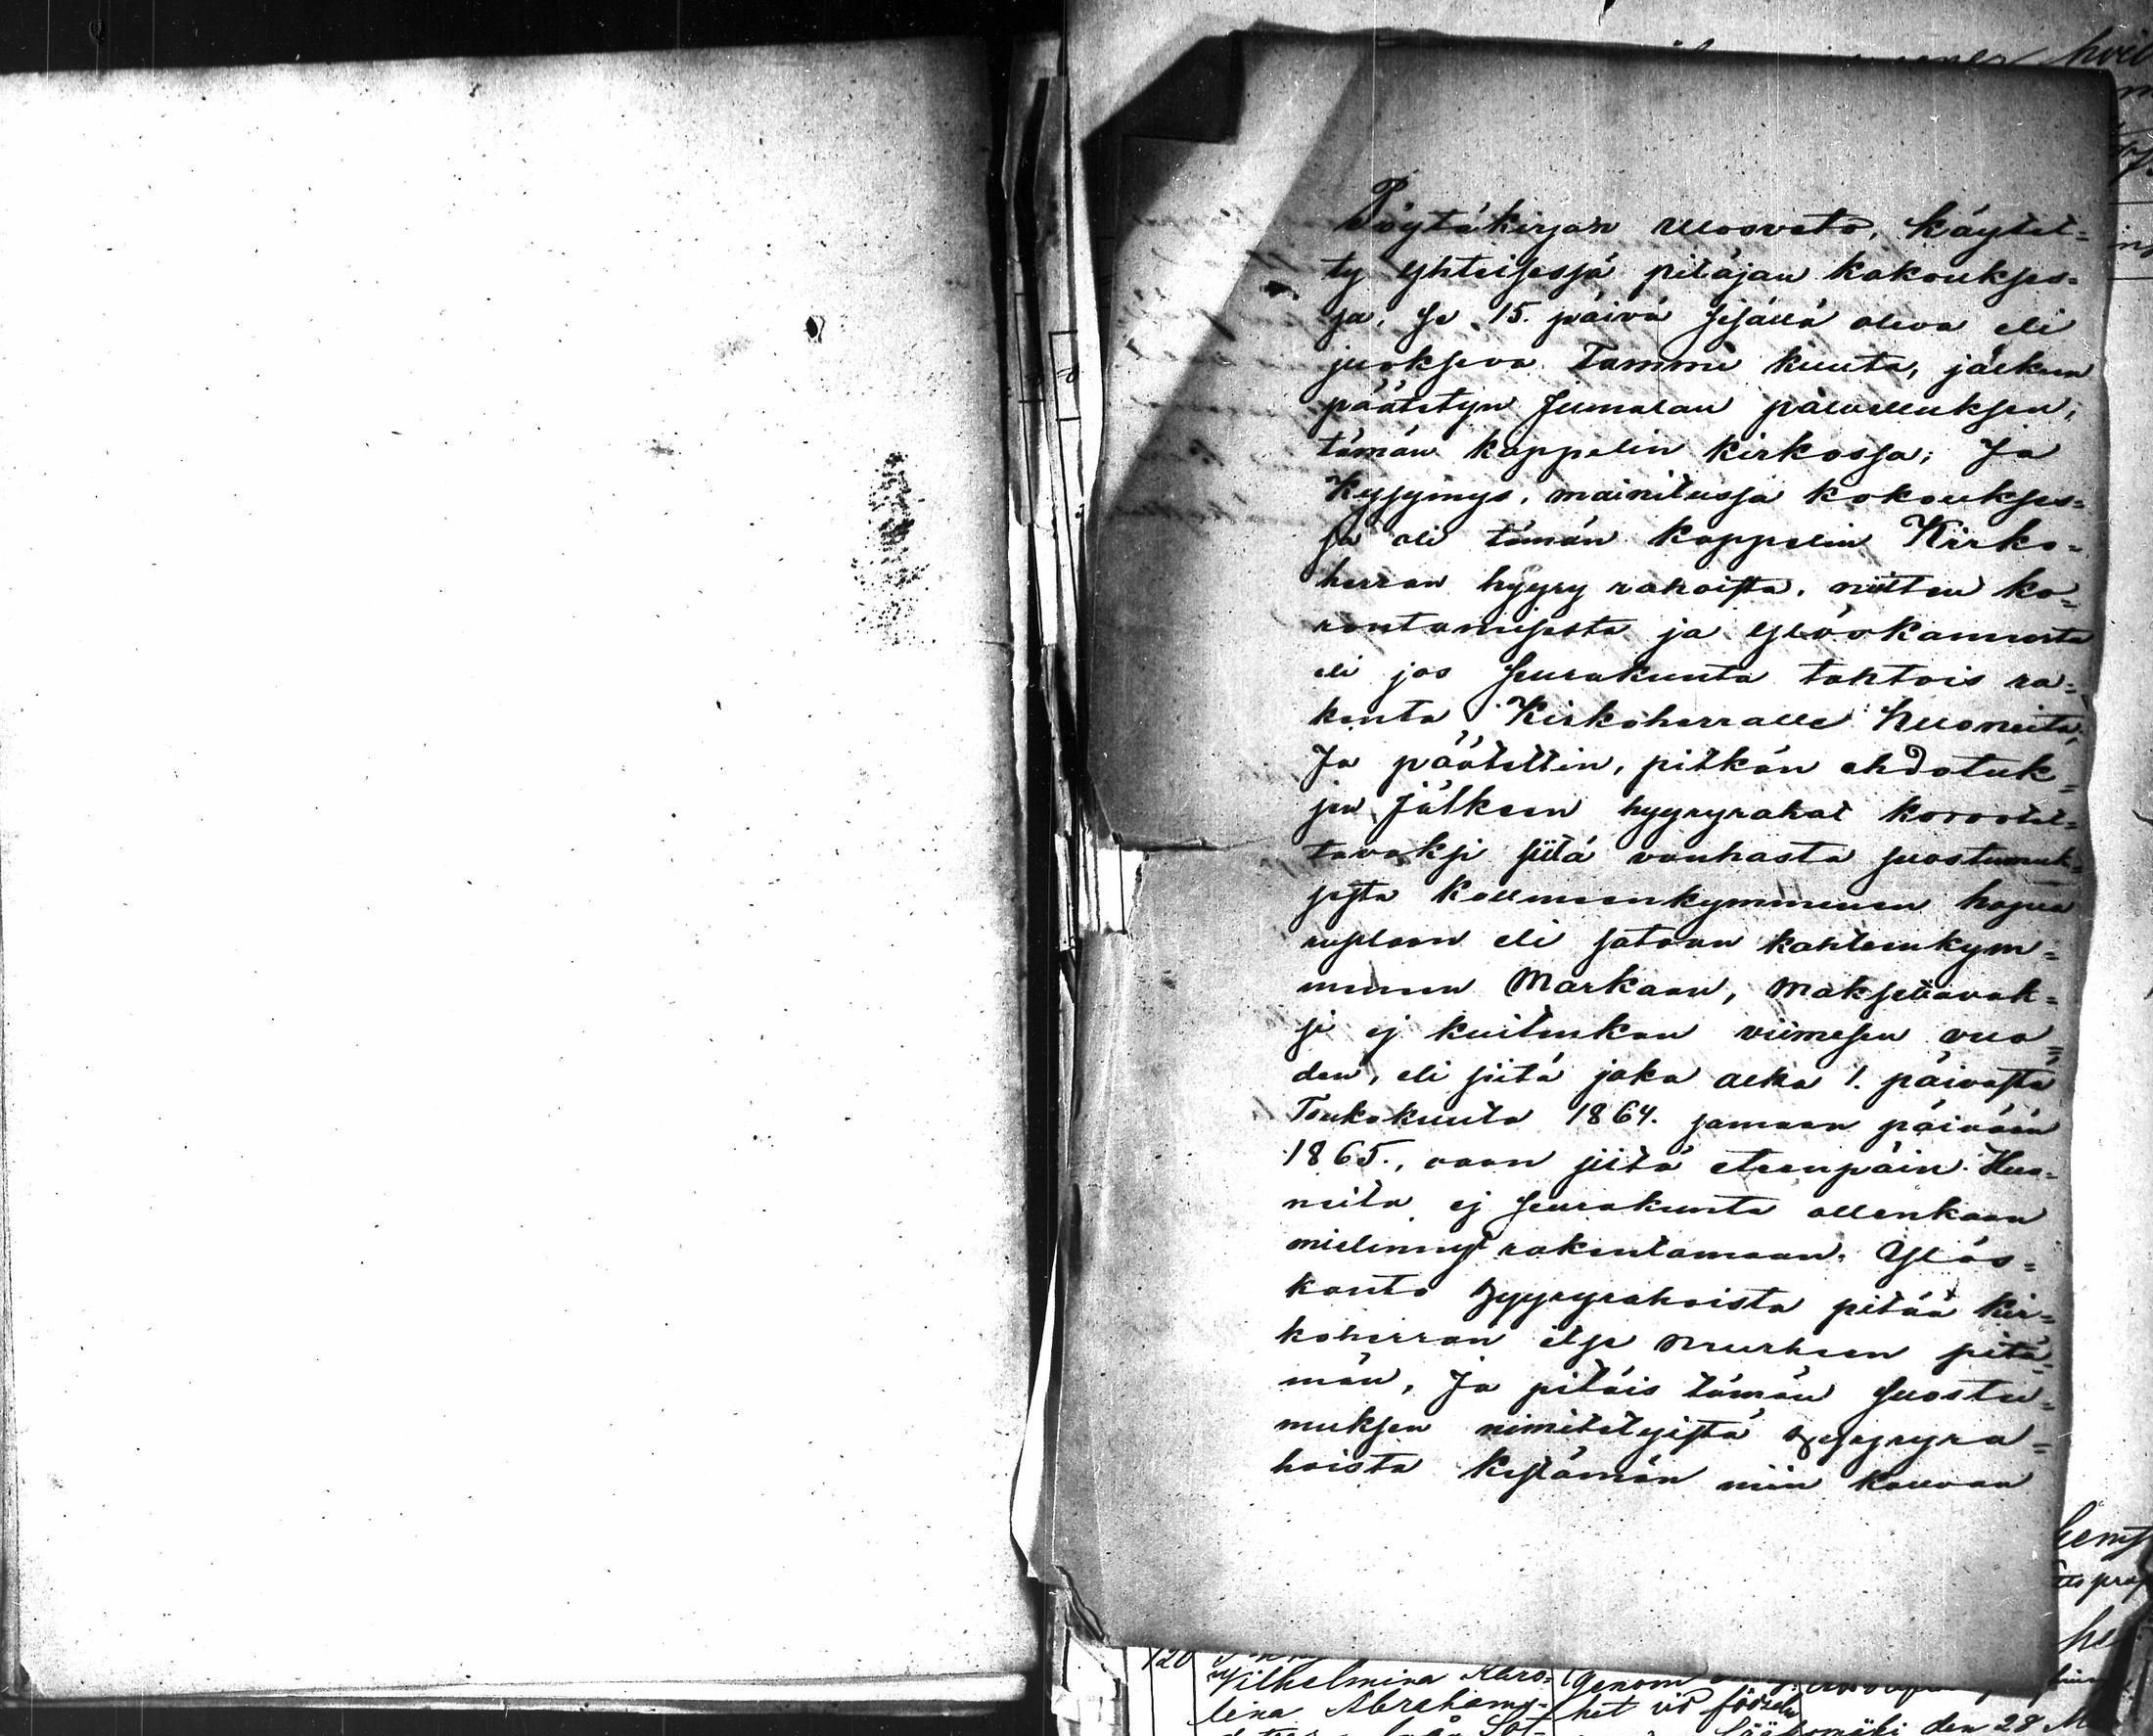 Pöytäkirjan Ulosveto, käytet=
ty yhteisessä pitäjan kokoukses=
sa, se 15. päivä sisällä oleva eli
juokseva Tammi kuuta, jälken
päätetyn Jumalan palvelluksen,
tämän kappelin kirkossa; Ja
Kysymys, mainitussa kokoukses=
sa oli tämän kappelin Kirko=
herran hyyry rahoista, niitten ko=
rontamisesta ja ylöskannosta
eli jos Seurakunta tahtois ra=
kenta Kirkoherralle huoneita,
Ja päätettin, pitkän ehdotuk=
sen Jälkeen hyyryrahat korotet=
tavaksi siitä vanhasta suostumuk=
sesta kolmeenkymmenen hopea
ruplaan eli sataan kahteenkym=
menen Markaan, Maksettavak=
si ej kuitenkan viimesen vuo=
den, eli siitä joka alka 1. päivästä
Toukokuuta 1864. samaan päivään
1865., vaan siitä eteenpäin. Huo=
neita ej Seurakunta ollenkaan
mielinnyt rakentamaan. Ylös=
kanto hyyryrahoista pitää Kir=
koherran itse murheen pitä=
män, Ja pitäis tämän Suostu=
muksen nimitetyistä hyyryra=
hoista kestämän niin kauvan
120
Wilhelmina Karo=
lina Abrahams=
Genom
het vid födseln
den 28